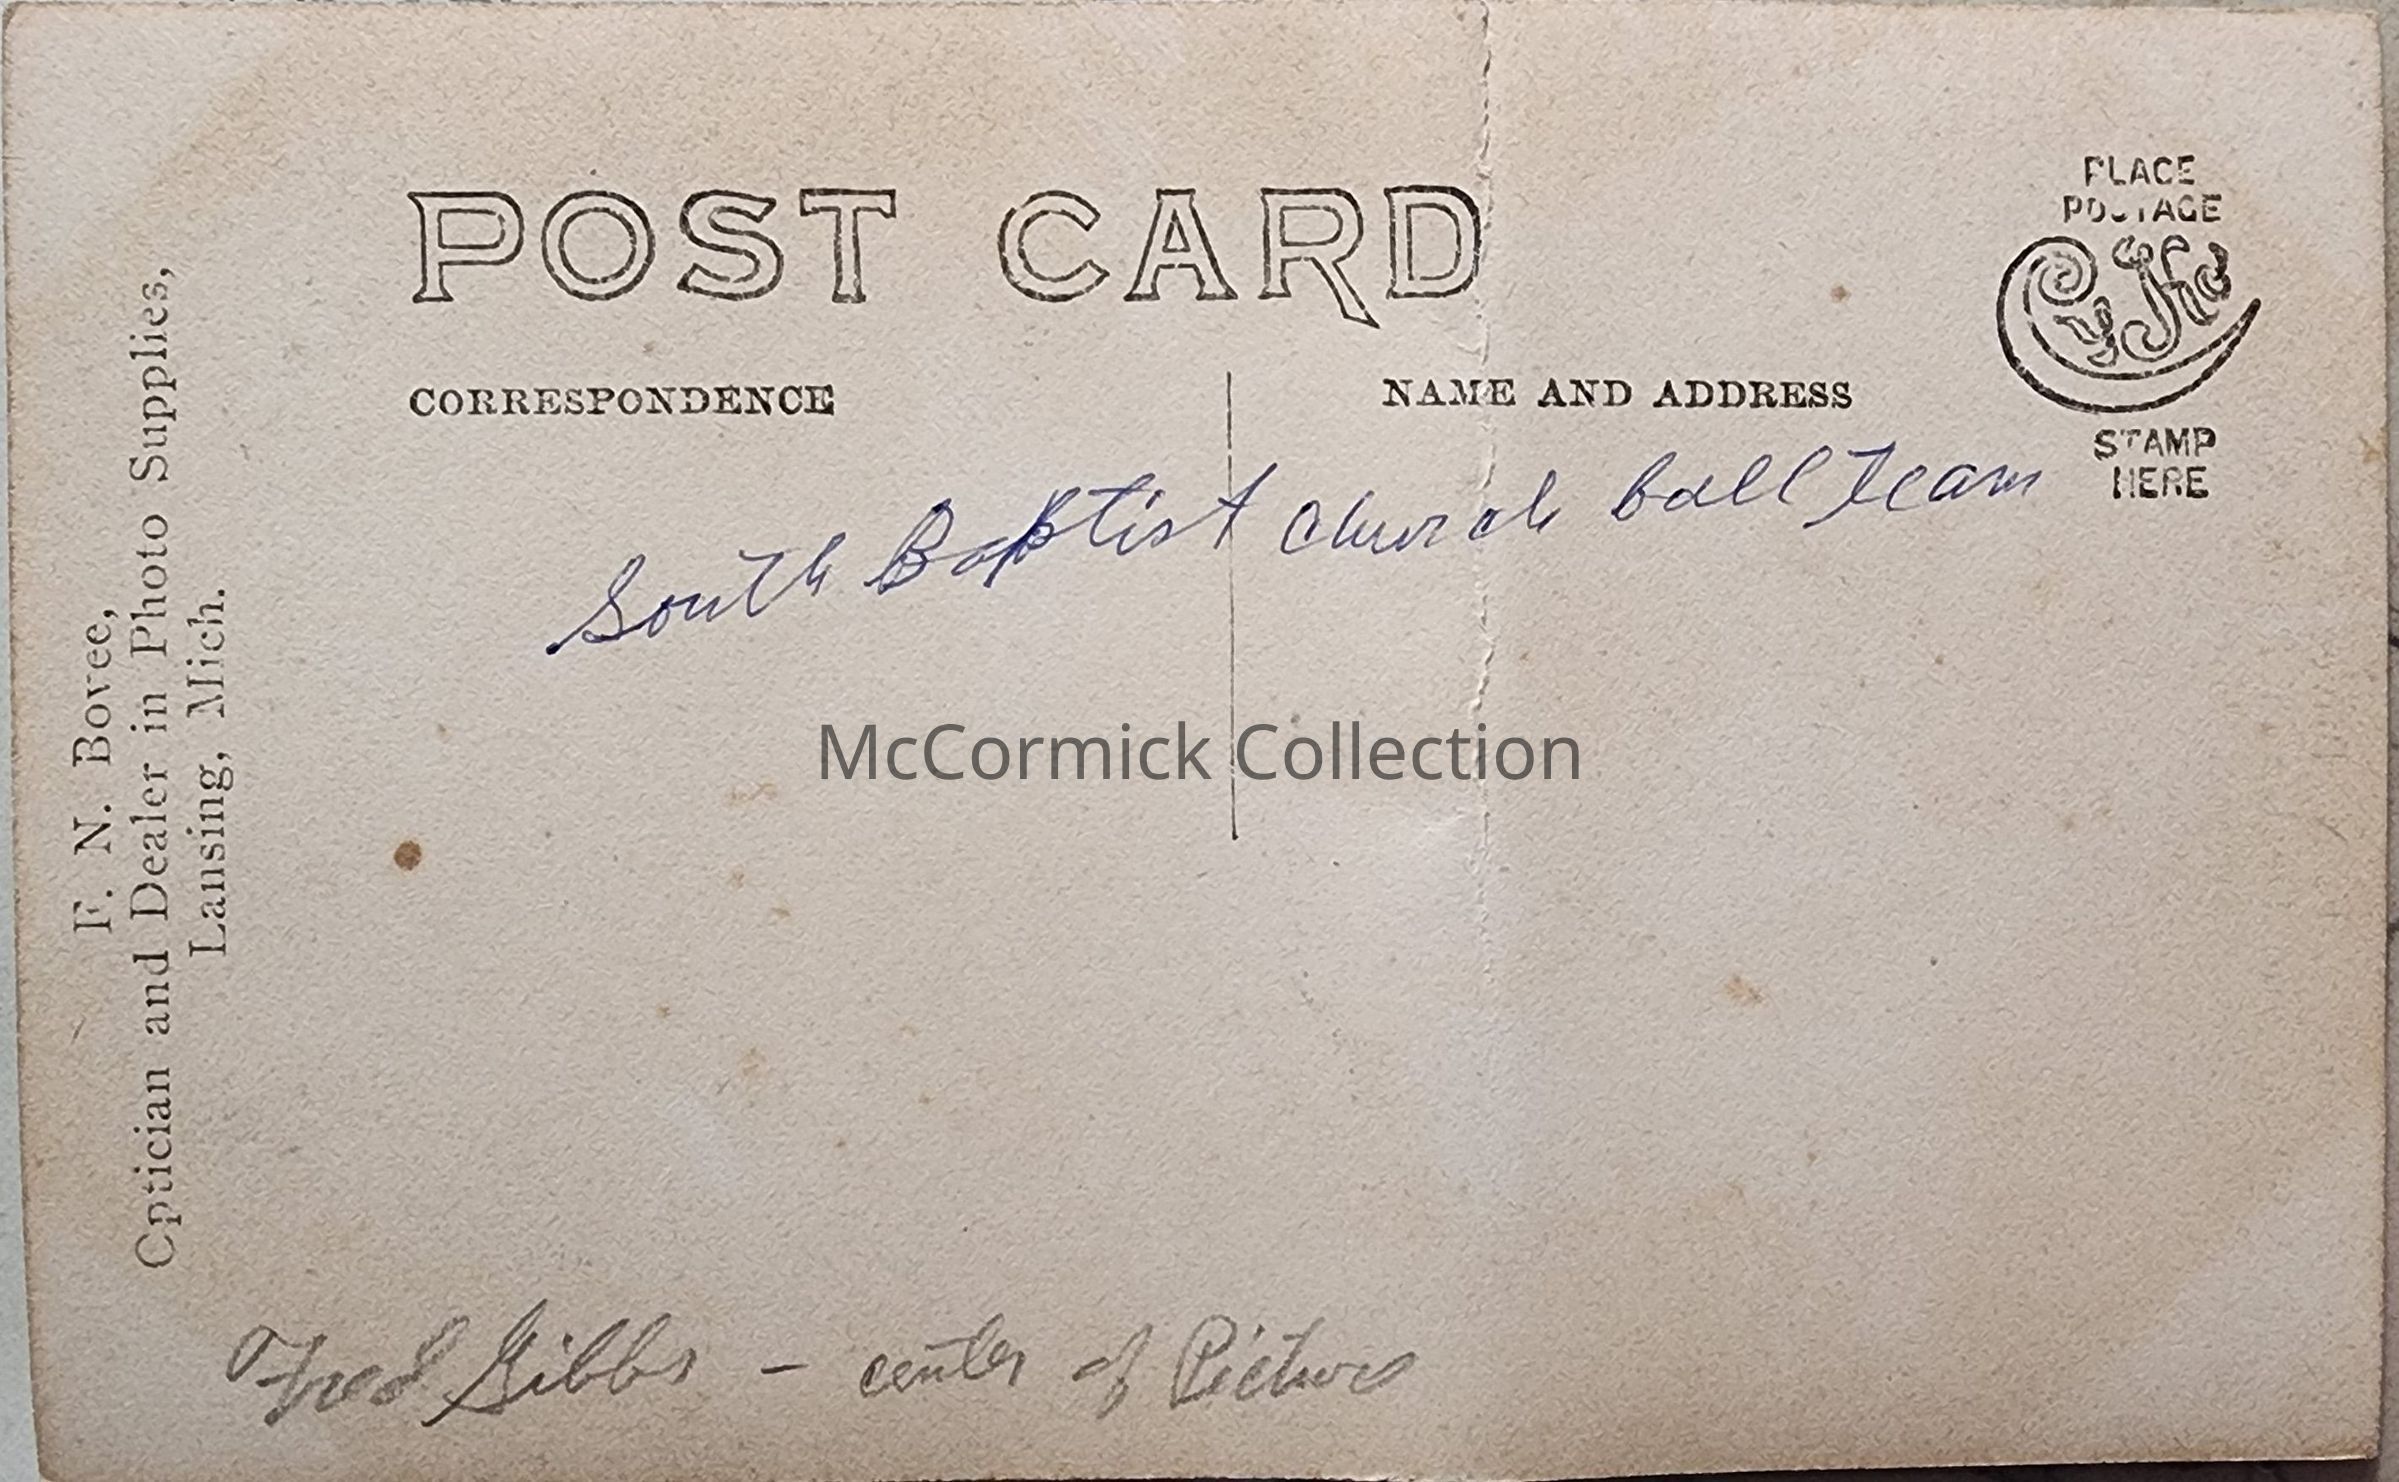 POST CARD
PLACE
POSTAGE
CyKo
STAMP
HERE
CORRESPONDENCE
NAME AND ADDRESS
South Baptist Church Ball Team
F. N. Bovee,
Optician and Dealer in Photo Supplies,
Lansing, Mich.
McCormick Collection
Fred Gibbs - center of Picture